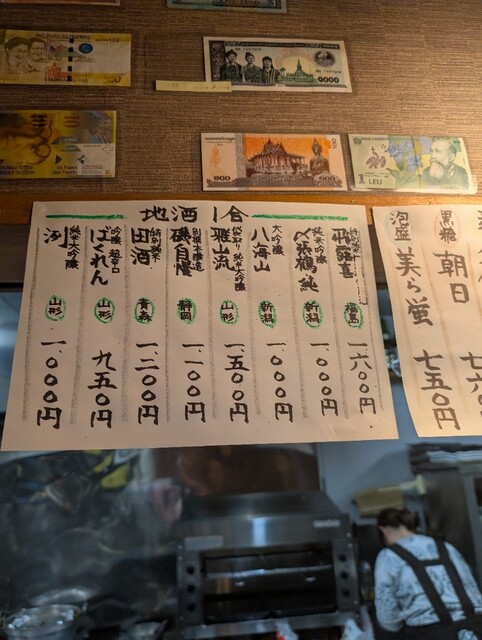 1000
100
100
1 LEU
地酒 一合
飛露喜
福島
一、六〇〇円
純米吟醸
〆張鶴 純
新潟
一、〇〇〇円
大吟醸
八海山
新潟
一、〇〇〇円
袋取り 純米大吟醸
雅山流
山形
一、五〇〇円
磯自慢
静岡
一、一〇〇円
特別純米
田酒
青森
一、二〇〇円
吟醸 超辛口
ばくれん
山形
九五〇円
純米大吟醸
洌
山形
一、〇〇〇円
泡盛
美ら蛍
七五〇円
黒糖
朝日